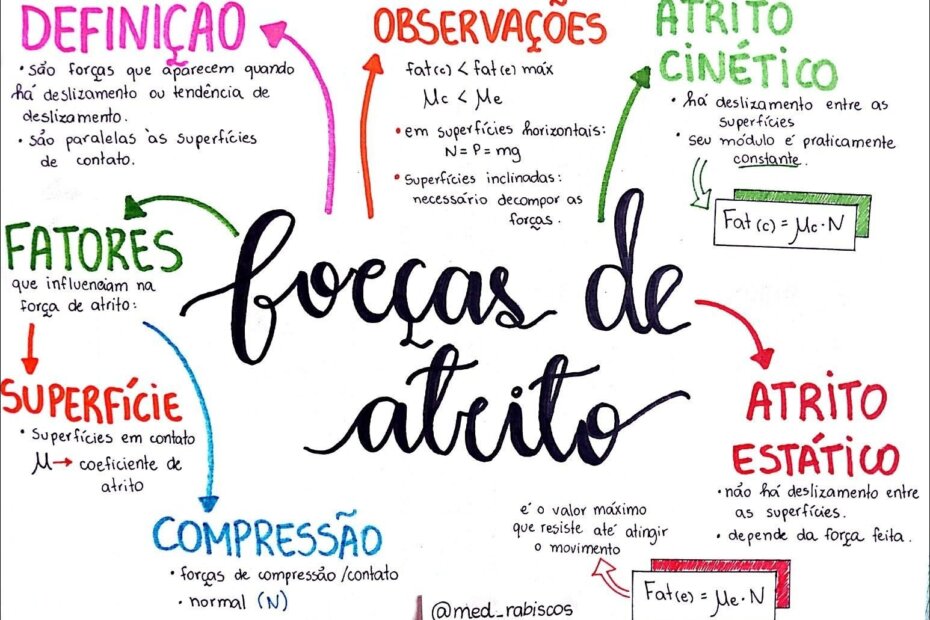 DEFINIÇÃO
• são forças que aparecem quando
há deslizamento ou tendência de
deslizamento.
• são paralelas às superfícies
de contato.
OBSERVAÇÕES
fat(c) < fat(e) máx
μc < μe
• em superfícies horizontais:
N = P = mg
• Superfícies inclinadas:
necessário decompor as
forças.
ATRITO
CINÉTICO
• há deslizamento entre as
superfícies
• seu módulo é praticamente
constante.
Fat(c) = μc · N
FATORES
que influenciam na
força de atrito:
forças de
atrito
SUPERFÍCIE
• Superfícies em contato
μ → coeficiente de
atrito
COMPRESSÃO
• forças de compressão/contato
• normal (N)
ATRITO
ESTÁTICO
• não há deslizamento entre
as superfícies.
• depende da força feita.
é o valor máximo
que resiste até atingir
o movimento
Fat(e) = μe · N
@med_rabiscos